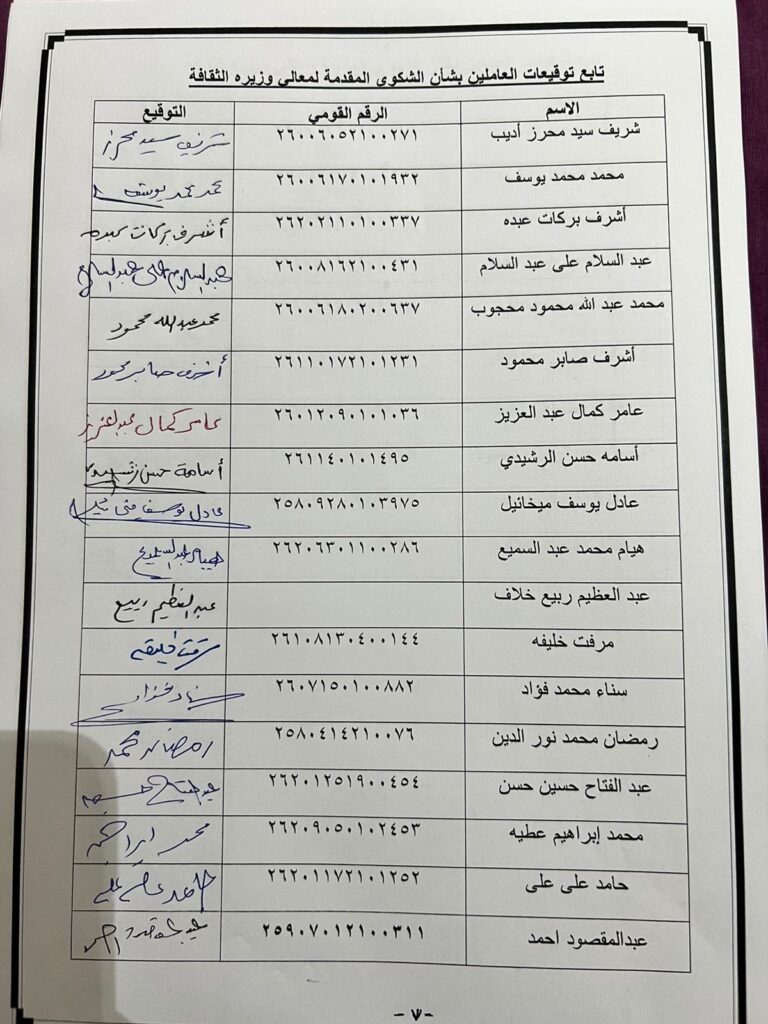 تابع توقيعات العاملين بشأن الشكوى المقدمة لمعالى وزيره الثقافة
الاسم الرقم القومي التوقيع
شريف سيد محرز أديب ٢٦٠٠٦٠٥٢١٠٠٢٧١ شريف سيد محرز
محمد محمد يوسف ٢٦٠٠٦١٧٠١٠١٩٣٢ محمد محمد يوسف
أشرف بركات عبده ٢٦٢٠٢١١٠١٠٠٣٣٧ أشرف بركات عبده
عبد السلام على عبد السلام ٢٦٠٠٨١٦٢١٠٠٤٣١ عبد السلام على عبد السلام
محمد عبد الله محمود محجوب ٢٦٠٠٦١٨٠٢٠٠٦٣٧ محمد عبد الله محمود
أشرف صابر محمود ٢٦١١٠١٧٢١٠١٢٣١ أشرف صابر محمود
عامر كمال عبد العزيز ٢٦٠١٢٠٩٠١٠١٠٣٦ عامر كمال عبد العزيز
أسامه حسن الرشيدي ٢٦١١٤٠١٠١٤٩٥ أسامة حسن
عادل يوسف ميخائيل ٢٥٨٠٩٢٨٠١٠٣٩٧٥ عادل يوسف ميخائيل
هيام محمد عبد السميع ٢٦٢٠٦٣٠١١٠٠٢٨٦ هيام عبد السميع
عبد العظيم ربيع خلاف عبد العظيم ربيع
مرفت خليفه ٢٦١٠٨١٣٠٤٠٠١٤٤ مرفت خليفه
سناء محمد فؤاد ٢٦٠٧١٥٠١٠٠٨٨٢ سناء
رمضان محمد نور الدين ٢٥٨٠٤١٤٢١٠٠٧٦ رمضان محمد
عبد الفتاح حسين حسن ٢٦٢٠١٢٥١٩٠٠٤٥٤ عبد الفتاح
محمد إبراهيم عطيه ٢٦٢٠٩٠٥٠١٠٢٤٥٣ محمد ابراهيم
حامد على على ٢٦٢٠١١٧٢١٠١٢٥٢ حامد على على
عبدالمقصود احمد ٢٥٩٠٧٠١٢١٠٠٣١١ عبد المقصود احمد
-٧-